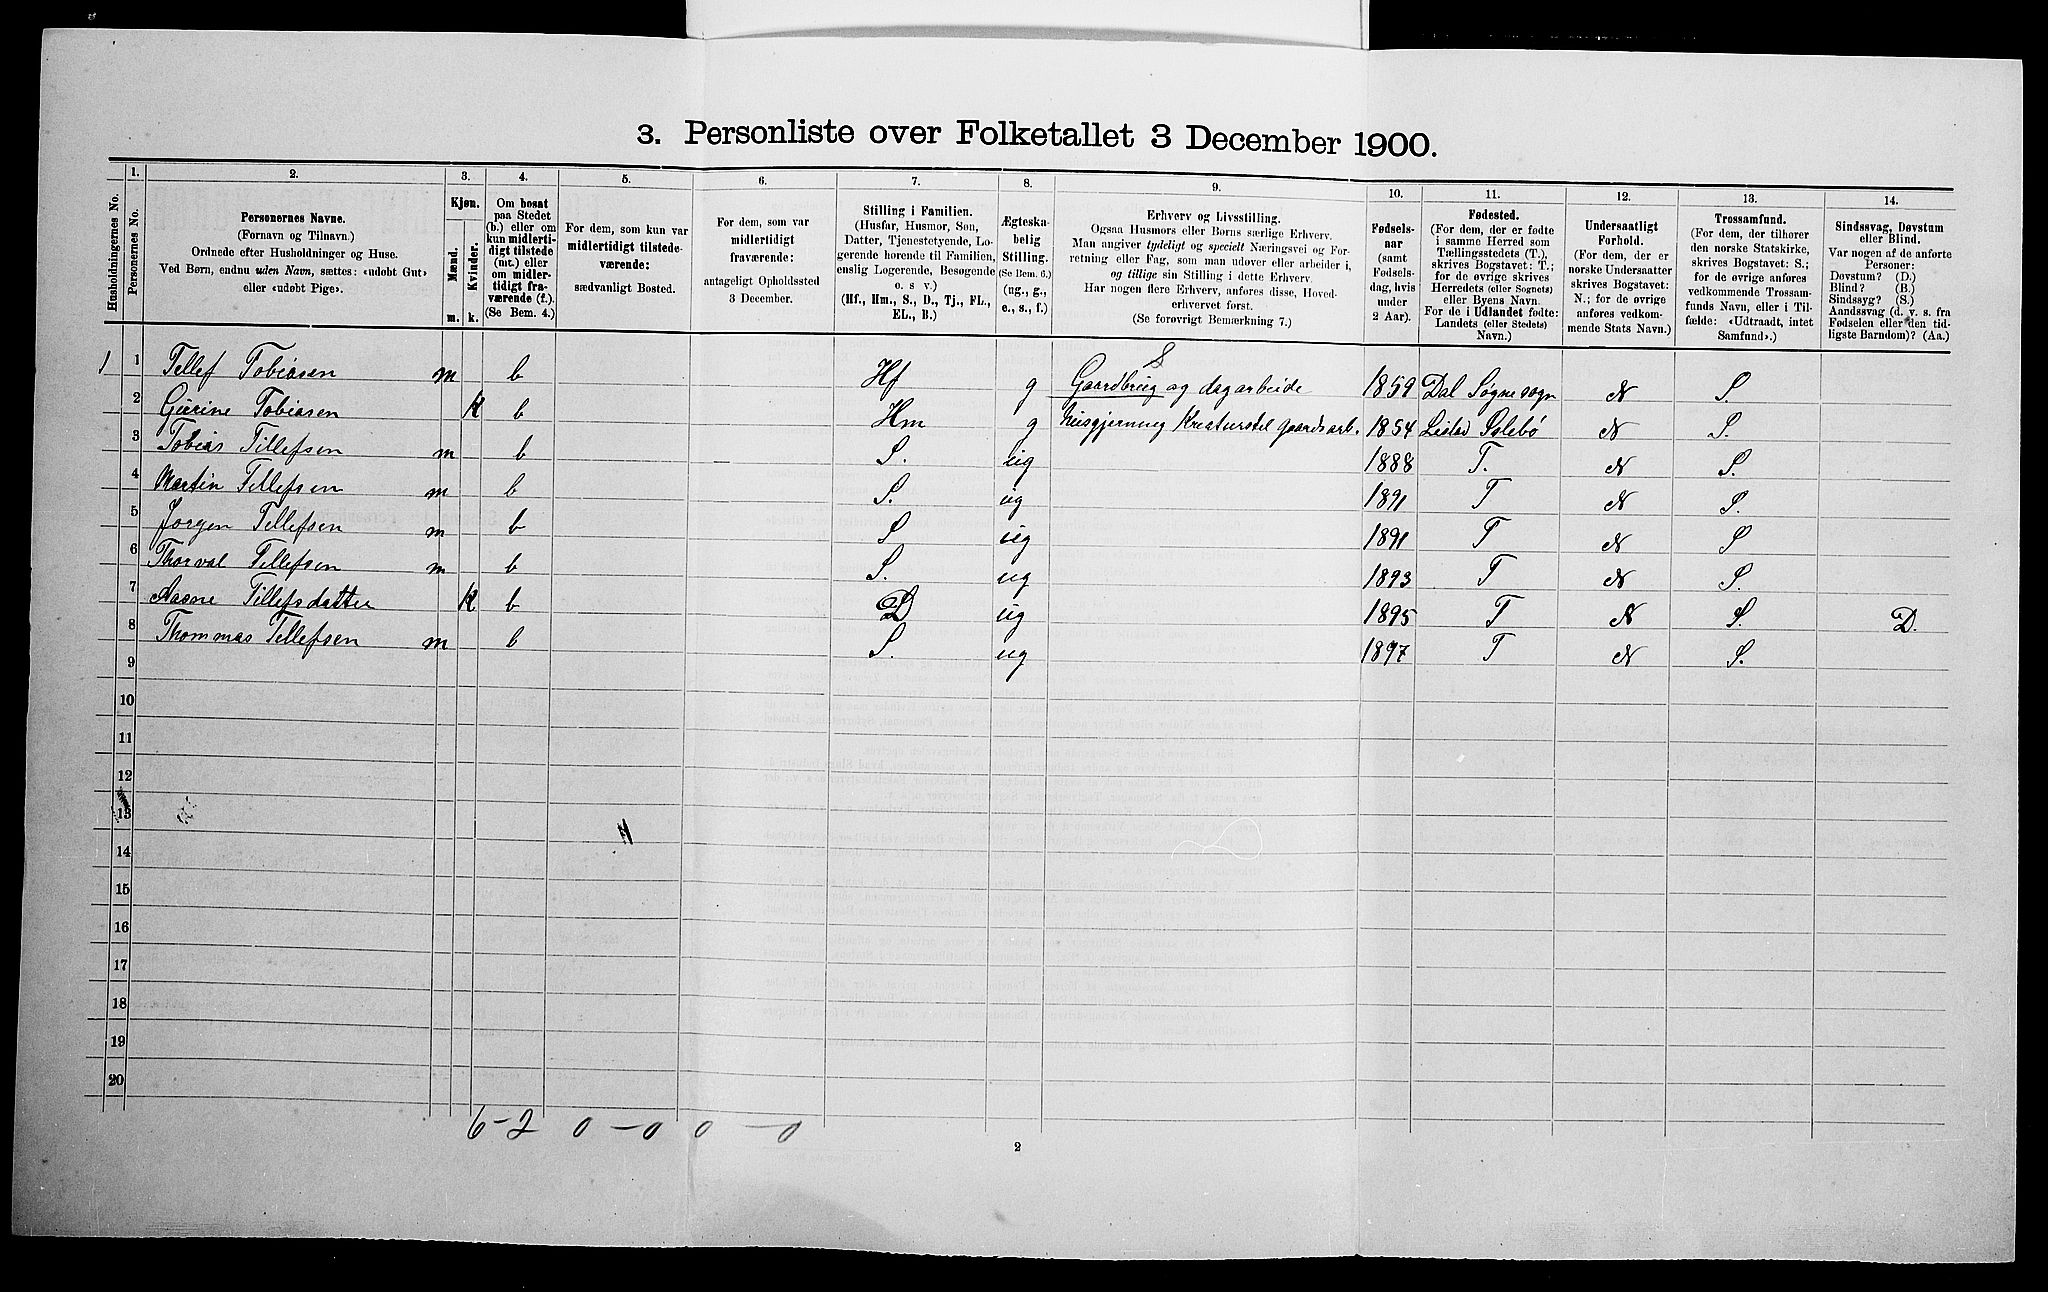 3. Personliste over Folketallet 3 December 1900.
Husholdningernes No.
1. Personernes No.
2. Personernes Navne.
(Fornavn og Tilnavn.)
Ordnede efter Husholdninger og Huse.
Ved Børn, endnu uden Navn, sættes: «udøbt Gut»
eller «udøbt Pige».
3. Kjøn.
Mænd. Kvinder.
m. k.
4. Om bosat
paa Stedet
(b.) eller om
kun midlerti-
digt tilstede
(mt.) eller
om midler-
tidigt fra-
værende (f.).
(Se Bem. 4.)
5. For dem, som kun var
midlertidigt tilstede-
værende:
sædvanligt Bosted.
6. For dem, som var
midlertidigt
fraværende:
antageligt Opholdssted
3 December.
7. Stilling i Familien.
(Husfar, Husmor, Søn,
Datter, Tjenestetyende, Lo-
gerende hørende til Familien,
enslig Logerende, Besøgende
o. s v.)
(Hf., Hm., S., D., Tj., FL.,
EL., B.)
8. Ægteska-
belig
Stilling.
(Se Bem. 6.)
(ug., g.,
e., s., f.)
9. Erhverv og Livsstilling.
Ogsaa Husmors eller Børns særlige Erhverv.
Man angiver tydeligt og specielt Næringsvei og For-
retning eller Fag, som man udøver eller arbeider i,
og tillige sin Stilling i dette Erhverv.
Har nogen flere Erhverv, anføres disse, Hoved-
erhvervet først.
(Se forøvrigt Bemærkning 7.)
10. Fødsels-
aar
(samt
Fødsels-
dag, hvis
under
2 Aar).
11. Fødested.
(For dem, der er fødte
i samme Herred som
Tællingsstedets (T.),
skrives Bogstavet: T.;
for de øvrige skrives
Herredets (eller Sognets)
eller Byens Navn.
For de i Udlandet fødte:
Landets (eller Stedets)
Navn.)
12. Undersaatligt
Forhold.
(For dem, der er
norske Undersaatter
skrives Bogstavet:
N.; for de øvrige
anføres vedkom-
mende Stats Navn.)
13. Trossamfund.
(For dem, der tilhører
den norske Statskirke,
skrives Bogstavet: S.;
for de øvrige anføres
vedkommende Trossam-
funds Navn, eller i Til-
fælde: «Udtraadt, intet
Samfund».)
14. Sindssvag, Døvstum
eller Blind.
Var nogen af de anførte
Personer:
Døvstum? (D.)
Blind? (B.)
Sindssyg? (S.)
Aandssvag (d. v. s. fra
Fødselen eller den tid-
ligste Barndom)? (Aa.)
1 1 Tellef Tobiasen m b Hf g Gaardbrug og dagarbeide 1859 Dal Søgne sogn N S.
2 Gurine Tobiasen k b Hm g husgjerning Kreaturstel gaardsarb. 1854 N S.
3 Tobias Tillefsen m b S. ug 1888 T. N S.
4 Martin Tillefsen m b S. ug 1891 T N S.
5 Jorgen Tillefsen m b S ug 1891 T N S
6 Thorval Tillefsen m b S. ug 1893 T N S.
7 Aasne Tillefsdatter k b D ug 1895 T N S. D.
8 Thommas Tillefsen m b S. ug 1897 T N S.
9
10
11
12
13
14
15
16
17
18
19
20
6-2 0-0 0-0
2